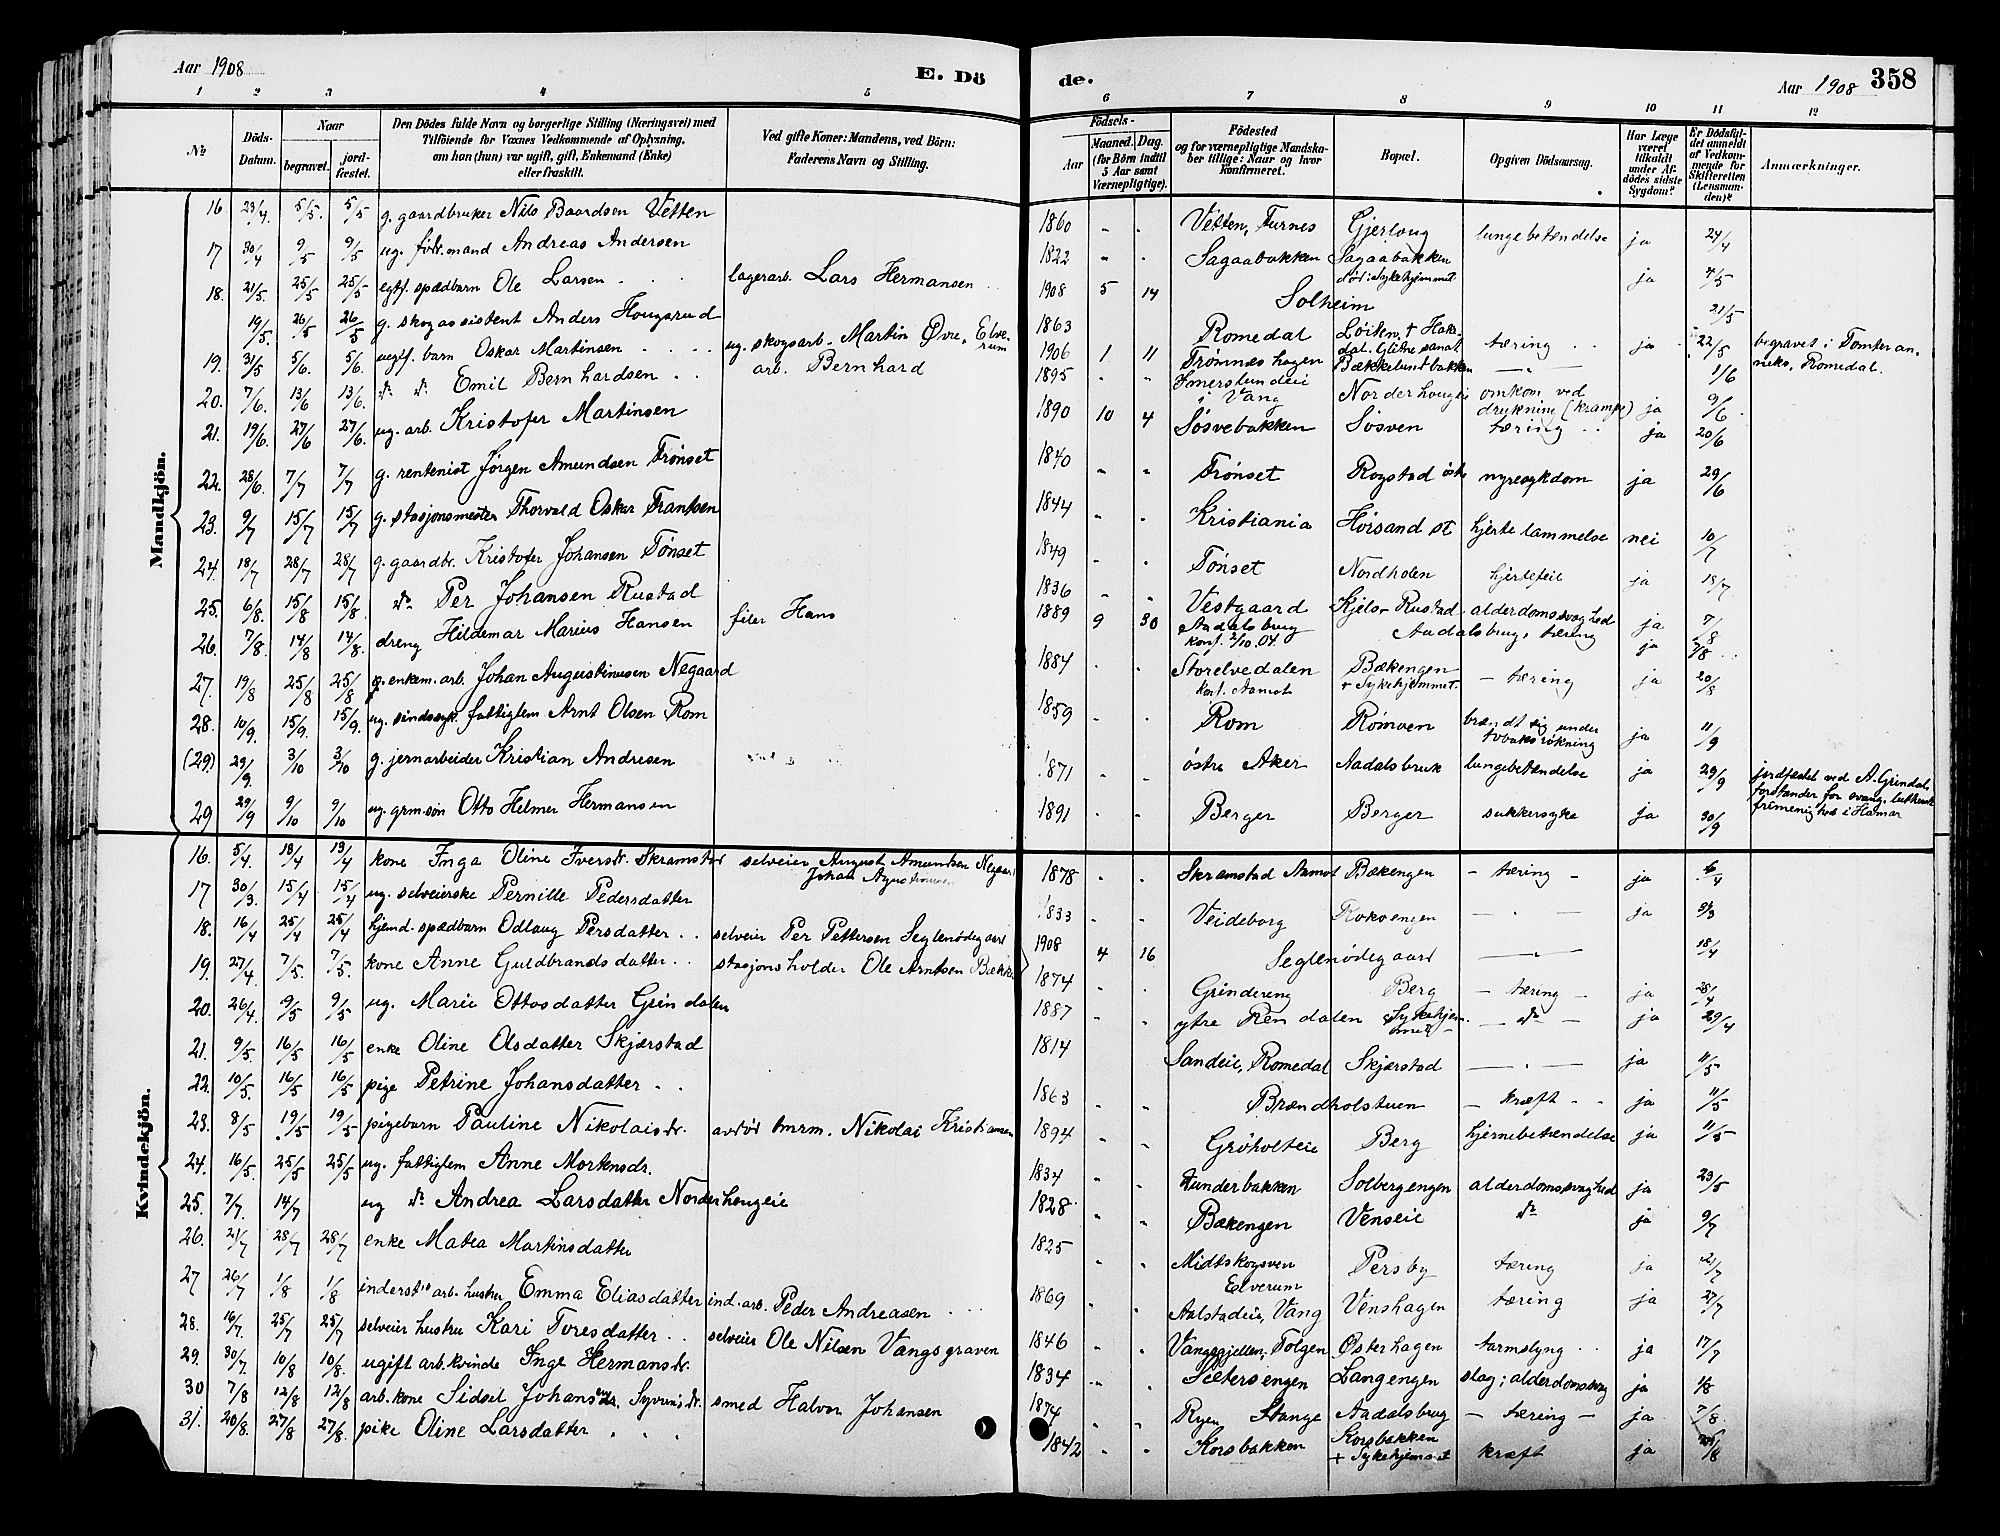 Aar 1908
E. Dö
de.
Aar 1908 358
1 2 3 4 5 6 7 8 9 10 11 12
No
Döds-Datum.
Naar
begravet.
jord-fæstet.
Den Dödes fulde Navn og borgerlige Stilling (Næringsvei) med
Tilföiende for Voxnes Vedkommende af Oplysning,
om han (hun) var ugift, gift, Enkemand (Enke)
eller fraskilt.
Ved gifte Koner: Mandens, ved Börn:
Faderens Navn og Stilling.
Födsels-
Aar
Maaned. Dag.
(for Börn indtil
5 Aar samt
Værnepligtige).
Födested
og for værnepligtige Mandska-
ber tillige: Naar og hvor
konfirmeret.
Bopæl.
Opgiven Dödsaarsag.
Har Læge
været
tilkaldt
under Af-
dödes sidste
Sygdom?
Er Dödsfal-
det anmeldt
af Vedkom-
mende for
Skifteretten
(Lensman-
den)?
Anmærkninger.
Mandkjön.
16 23/4. 5/5. 5/5 g. gaardbruker Nils Baardsen Vetten 1860 " " Vetten, Furnes Gjerlaug lungebetændelse ja 24/4
17 30/4 9/5 9/5 ug. födr.mand Andreas Andersen 1822 " " Sagaabakken Sagaabakken ja 4/5
18. 21/5. 25/5 25/5 egtf. spædbarn Ole Larsen lagerarb. Lars Hermansen 1908 5 14 Solheim 21/5
19/5. 26/5 26/5 g. skogassistent Anders Hougsrud 1863 Romedal Löiten, + Hakadal. Glitre sanat. tæring ja 22/5 begravet i Tomter anneks, Romedal.
19. 31/5 5/6. 5/6. uegtf. barn Oskar Martinsen ug. skogsarb. Martin Øvre, Elverum 1906 1 11 Trønneshagen Bækkelundbakken — " — 1/6
20. 7/6. 13/6 13/6. do do Emil Bernhardsen arb. Bernhard 1895 " " Imerslundeie i Vang Norderhougeie omkom ved drukning (krampe) ja 9/6
21. 19/6. 27/6 27/6. ug. arb. Kristofer Martinsen 1890 10 4 Søsvebakken Søsven tæring ja 20/6
22. 28/6. 7/7 7/7 g. rentenist Jörgen Amundsen Trönset 1840 " " Trönset Rogstad östr. nyresykdom ja 29/6
23. 9/7 15/7 15/7 g. stasjonsmester Thorvald Oskar Frantsen 1844 " " Kristiania Hörsand st hjertelammelse nei 10/7
24. 18/7 28/7 28/7 g. gaardbr. Kristofer Johansen Tönset 1849 " " Tönset Nordholen hjertefeil ja 18/7
25. 6/8. 15/8 15/8. do Per Johansen Rustad 1836 " " Vestgaard Kjels- Rustad alderdomssvaghed ja 7/8
26. 7/8. 14/8 14/8. dreng Hildemar Marius Hansen filer Hans 1889 9 30 Aadalsbrug konf. 2/10.04. Aadalsbrug. tæring ja 7/8
27. 19/8 25/8 25/8 g. enkem. arb. Johan Augustinusen Negaard 1884 " " Storelvedalen konf. Aamot Bækengen + Sykehjemmet. - tæring ja 20/8
28. 10/9. 15/9. 15/9. ug. sindssyk fattiglem Arnt Olsen Rom 1859 " " Rom Rømven brændt sig under tobaksrökning ja 11/9
(29) 29/9. 3/10 3/10 g. jernarbeider Kristian Andresen 1871 " " östre Aker Aadalsbruk lungebetændelse ja 29/9 jordfæstet ved A. Grindal, forstander for evang. luthersk frimenighed i Hamar
29 29/9 9/10 9/10 ug. grmsön Otto Helmer Hermansen 1891 " " Berger Berger sukkersyke ja 30/9
Kvindekjön.
16. 5/4. 13/4 13/4 kone Inga Oline Iversdr. Skramstad selveier August Amundsen Negaard Johan 1878 " " Skramstad Aamot Bækengen - tæring - ja 6/4
17 30/3. 15/4 15/4 ug. selveierske Pernille Pedersdatter 1833 " " Veideborg Rokoengen — " — ja 31/3
18. 16/4 25/4 25/4 hjemd. spædbarn Odlaug Persdatter selveier Per Pettersen Seglenödegaard 1908 4 16 Seglenödegaard — " — 18/4
19. 27/4 7/5. 7/5. kone Anne Guldbrandsdatter stasjonsholder Ole Arntsen Bække 1874 " " Grindereng Berg - tæring - ja 28/4
20. 26/4. 9/5 9/5 ug. Marie Ottosdatter Grindalen 1887 " " ytre Rendalen + Sykehjemmet — do — ja 29/4
21. 9/5. 16/5 16/5 enke Oline Olsdatter Skjærstad 1814 Sandeie, Romedal Skjærstad — " — ja 11/5
22. 10/5. 16/5 16/5 pige Petrine Johansdatter 1863 " " Brændholstuen - kræft - ja 11/5
23. 8/5 19/5 19/5 pigebarn Pauline Nikolaisdr. avdöd tmrm. Nikolai Kristiansen 1894 " " Gröholteie Berg hjernebetændelse ja 11/5
24. 16/5. 25/5 25/5 ug. fattiglem Anne Mortensdr. 1834 " " Hunderbakken Solbergengen alderdomssvaghed ja 23/5
25. 7/7. 14/7 ug do Andrea Larsdatter Norderhougeie 1828 " " Bækengen Venseie do ja 9/7
26. 21/7 28/7 28/7 enke Matea Martinsdatter 1825 " " Midtskogsven Elverum Persby tæring ja 21/7
27 26/7 1/8 1/8 inderst arb. hustru Emma Eliasdatter ind. arb. Peder Andreasen 1869 " " Aalstadeie, Vang Venshagen tæring ja 27/7
28. 16/7. 25/7 25/7 selveier hustru Kari Toresdatter selveier Ole Nilsen Vangsgraven 1846 " " Vangsgjellen, Tolgen Østerhagen tarmslyng ja 17/7
29. 30/7. 10/8 10/8. ugift arb.kvinde Inge Hermansdr. 1834 " " Sætersengen Langengen slag; alderdomssvag ja 1/8
30 7/8 12/8 12/8 arb. kone Sidsel Johans Syversdr. smed Halvor Johansen 1874 " " Ryen Stange Aadalsbrug - tæring - ja 7/8.
31. 20/8. 27/8 27/8. pike Oline Larsdatter 1842 " " Korsbakken Korsbakken + Sykehjemmet kræft ja